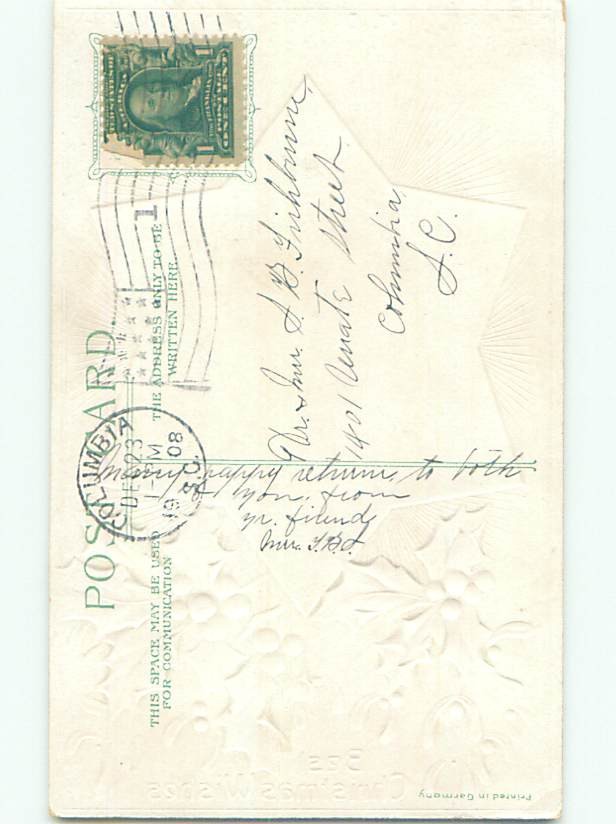 POST CARD
THIS SPACE MAY BE USED
FOR COMMUNICATION
THE ADDRESS ONLY TO BE
WRITTEN HERE.
COLUMBIA
DEC 23
1- PM
1908
S.C.
1
Mr. & Mrs. S. B. Fishburne,
1401 Senate Street
Columbia,
S.C.
Many happy returns to both
you, from
yr. friend,
Printed in Germany
Best
Christmas Wishes